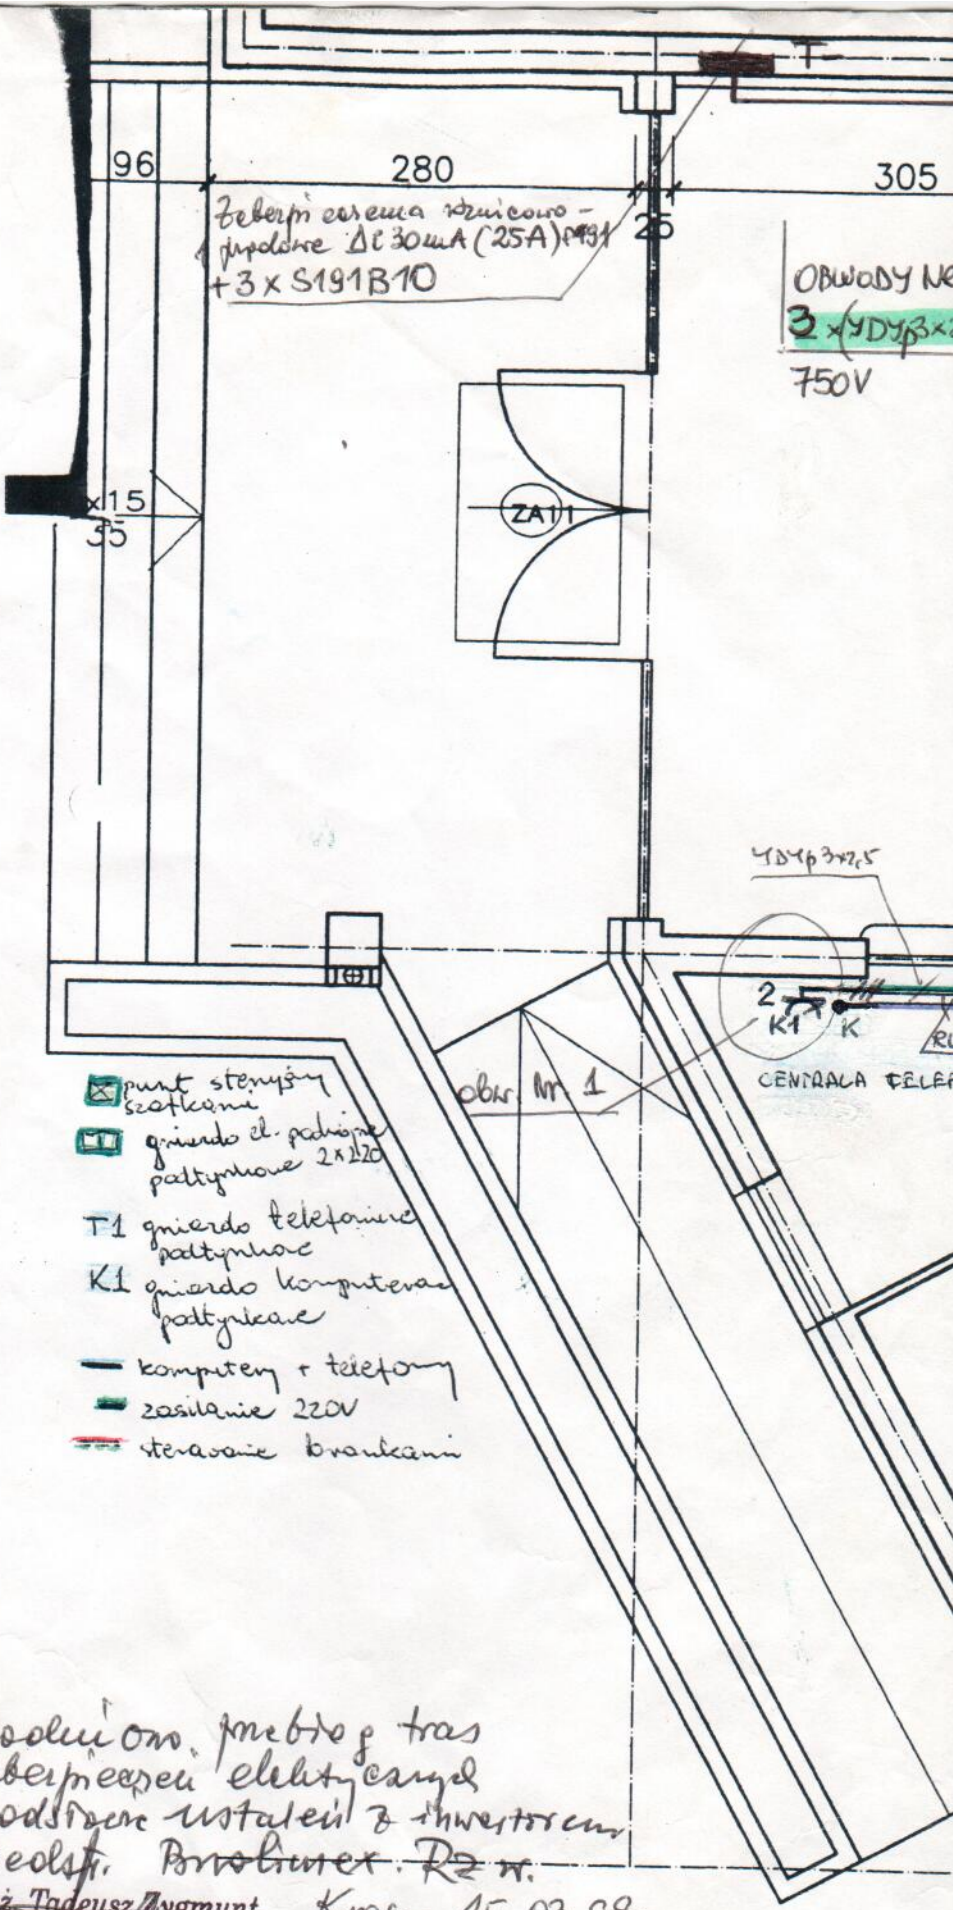 T
96
280
305
Zabezpieczenia różnicowo-
prądowe ΔI 30mA (25A) P191
+ 3 x S191B10
25
OBWODY
3 x (YDYp3x2
750V
x15
35
ZA11
YDYp3x2,5
2
K1 K
CENTRALA TELEF
obw. Nr. 1
punt
szatkami
gniazdo el. podwójne
podtynkowe 2x220
T1 gniazdo telefoniczne
podtynkowe
K1 gniazdo komputerowe
podtynkowe
komputery + telefony
zasilanie 220V
sterowanie bramkami
przebieg tras
elektrycznych
ustaleń z inwestorem
Rz w.
Tadeusz Zygmunt
15.02.98